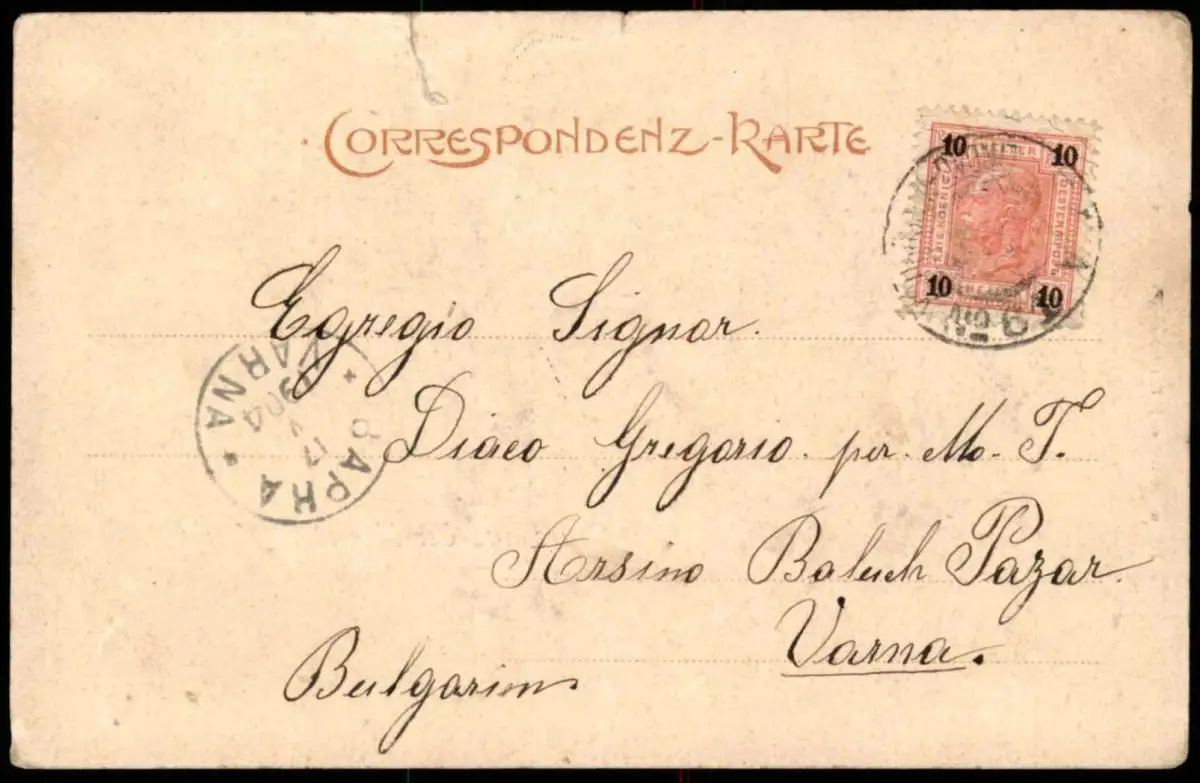 CORRESPONDENZ-KARTE
10 10
10 10
Egregio Signor.
Diaco Gregorio. per. Mo. T.
Arsino Baluch Pazar.
Varna.
Bulgarien.
ВАРНА
17
904
* VARNA *